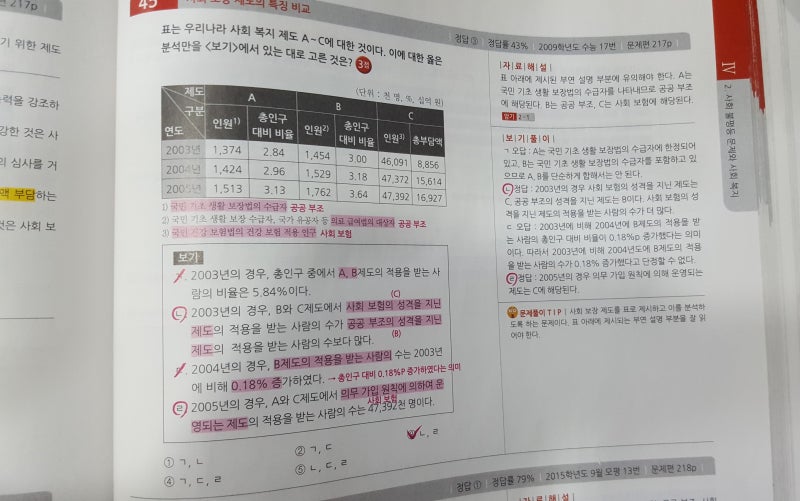 45 사회 보장 제도의 특징 비교
217p
기 위한 제도
능력을 강조하
강한 것은 사
의 심사를 거
액 부담하는
것은 사회 보
정답 ③ | 정답률 43% | 2009학년도 수능 17번 | 문제편 217p
표는 우리나라 사회 복지 제도 A~C에 대한 것이다. 이에 대한 옳은
분석만을 <보기>에서 있는 대로 고른 것은? 3점
(단위 : 천 명, %, 십억 원)
제도 A B C
구분
연도 인원1) 총인구 대비 비율 인원2) 총인구 대비 비율 인원3) 총부담액
2003년 1,374 2.84 1,454 3.00 46,091 8,856
2004년 1,424 2.96 1,529 3.18 47,372 15,614
2005년 1,513 3.13 1,762 3.64 47,392 16,927
1) 국민 기초 생활 보장법의 수급자 공공 부조
2) 국민 기초 생활 보장 수급자, 국가 유공자 등 의료 급여법의 대상자 공공 부조
3) 국민 건강 보험법의 건강 보험 적용 인구 사회 보험
보기
ㄱ. 2003년의 경우, 총인구 중에서 A, B제도의 적용을 받는 사
람의 비율은 5.84%이다.
(C)
ㄴ. 2003년의 경우, B와 C제도에서 사회 보험의 성격을 지닌
제도의 적용을 받는 사람의 수가 공공 부조의 성격을 지닌
제도의 적용을 받는 사람의 수보다 많다.
(B)
ㄷ. 2004년의 경우, B제도의 적용을 받는 사람의 수는 2003년
에 비해 0.18% 증가하였다. → 총인구 대비 0.18%P 증가하였다는 의미
ㄹ. 2005년의 경우, A와 C제도에서 의무 가입 원칙에 의하여 운
사회 보험
영되는 제도의 적용을 받는 사람의 수는 47,392천 명이다.
① ㄱ, ㄴ ② ㄱ, ㄷ ③ ㄴ, ㄹ
④ ㄱ, ㄷ, ㄹ ⑤ ㄴ, ㄷ, ㄹ
|자|료|해|설|
표 아래에 제시된 부연 설명 부분에 유의해야 한다. A는
국민 기초 생활 보장법의 수급자를 나타내므로 공공 부조
에 해당된다. B는 공공 부조, C는 사회 보험에 해당된다.
암기 2-1
|보|기|풀|이|
ㄱ 오답 : A는 국민 기초 생활 보장법의 수급자에 한정되어
있고, B는 국민 기초 생활 보장법의 수급자를 포함하고 있
으므로 A, B를 단순하게 합해서는 안 된다.
ㄴ 정답 : 2003년의 경우 사회 보험의 성격을 지닌 제도는
C, 공공 부조의 성격을 지닌 제도는 B이다. 사회 보험의 성
격을 지닌 제도의 적용을 받는 사람의 수가 더 많다.
ㄷ 오답 : 2003년에 비해 2004년에 B제도의 적용을 받
는 사람의 총인구 대비 비율이 0.18%p 증가했다는 의미
이다. 따라서 2003년에 비해 2004년도에 B제도의 적용
을 받는 사람의 수가 0.18% 증가했다고 단정할 수 없다.
ㄹ 정답 : 2005년의 경우 의무 가입 원칙에 의해 운영되는
제도는 C에 해당된다.
문제풀이 TIP | 사회 보장 제도를 표로 제시하고 이를 분석하
도록 하는 문제이다. 표 아래에 제시되는 부연 설명 부분을 잘 읽
어야 한다.
Ⅳ
2. 사회 불평등 문제와 사회 복지
정답 ① | 정답률 79% | 2015학년도 9월 모평 13번 | 문제편 218p
|자|료|해|설|